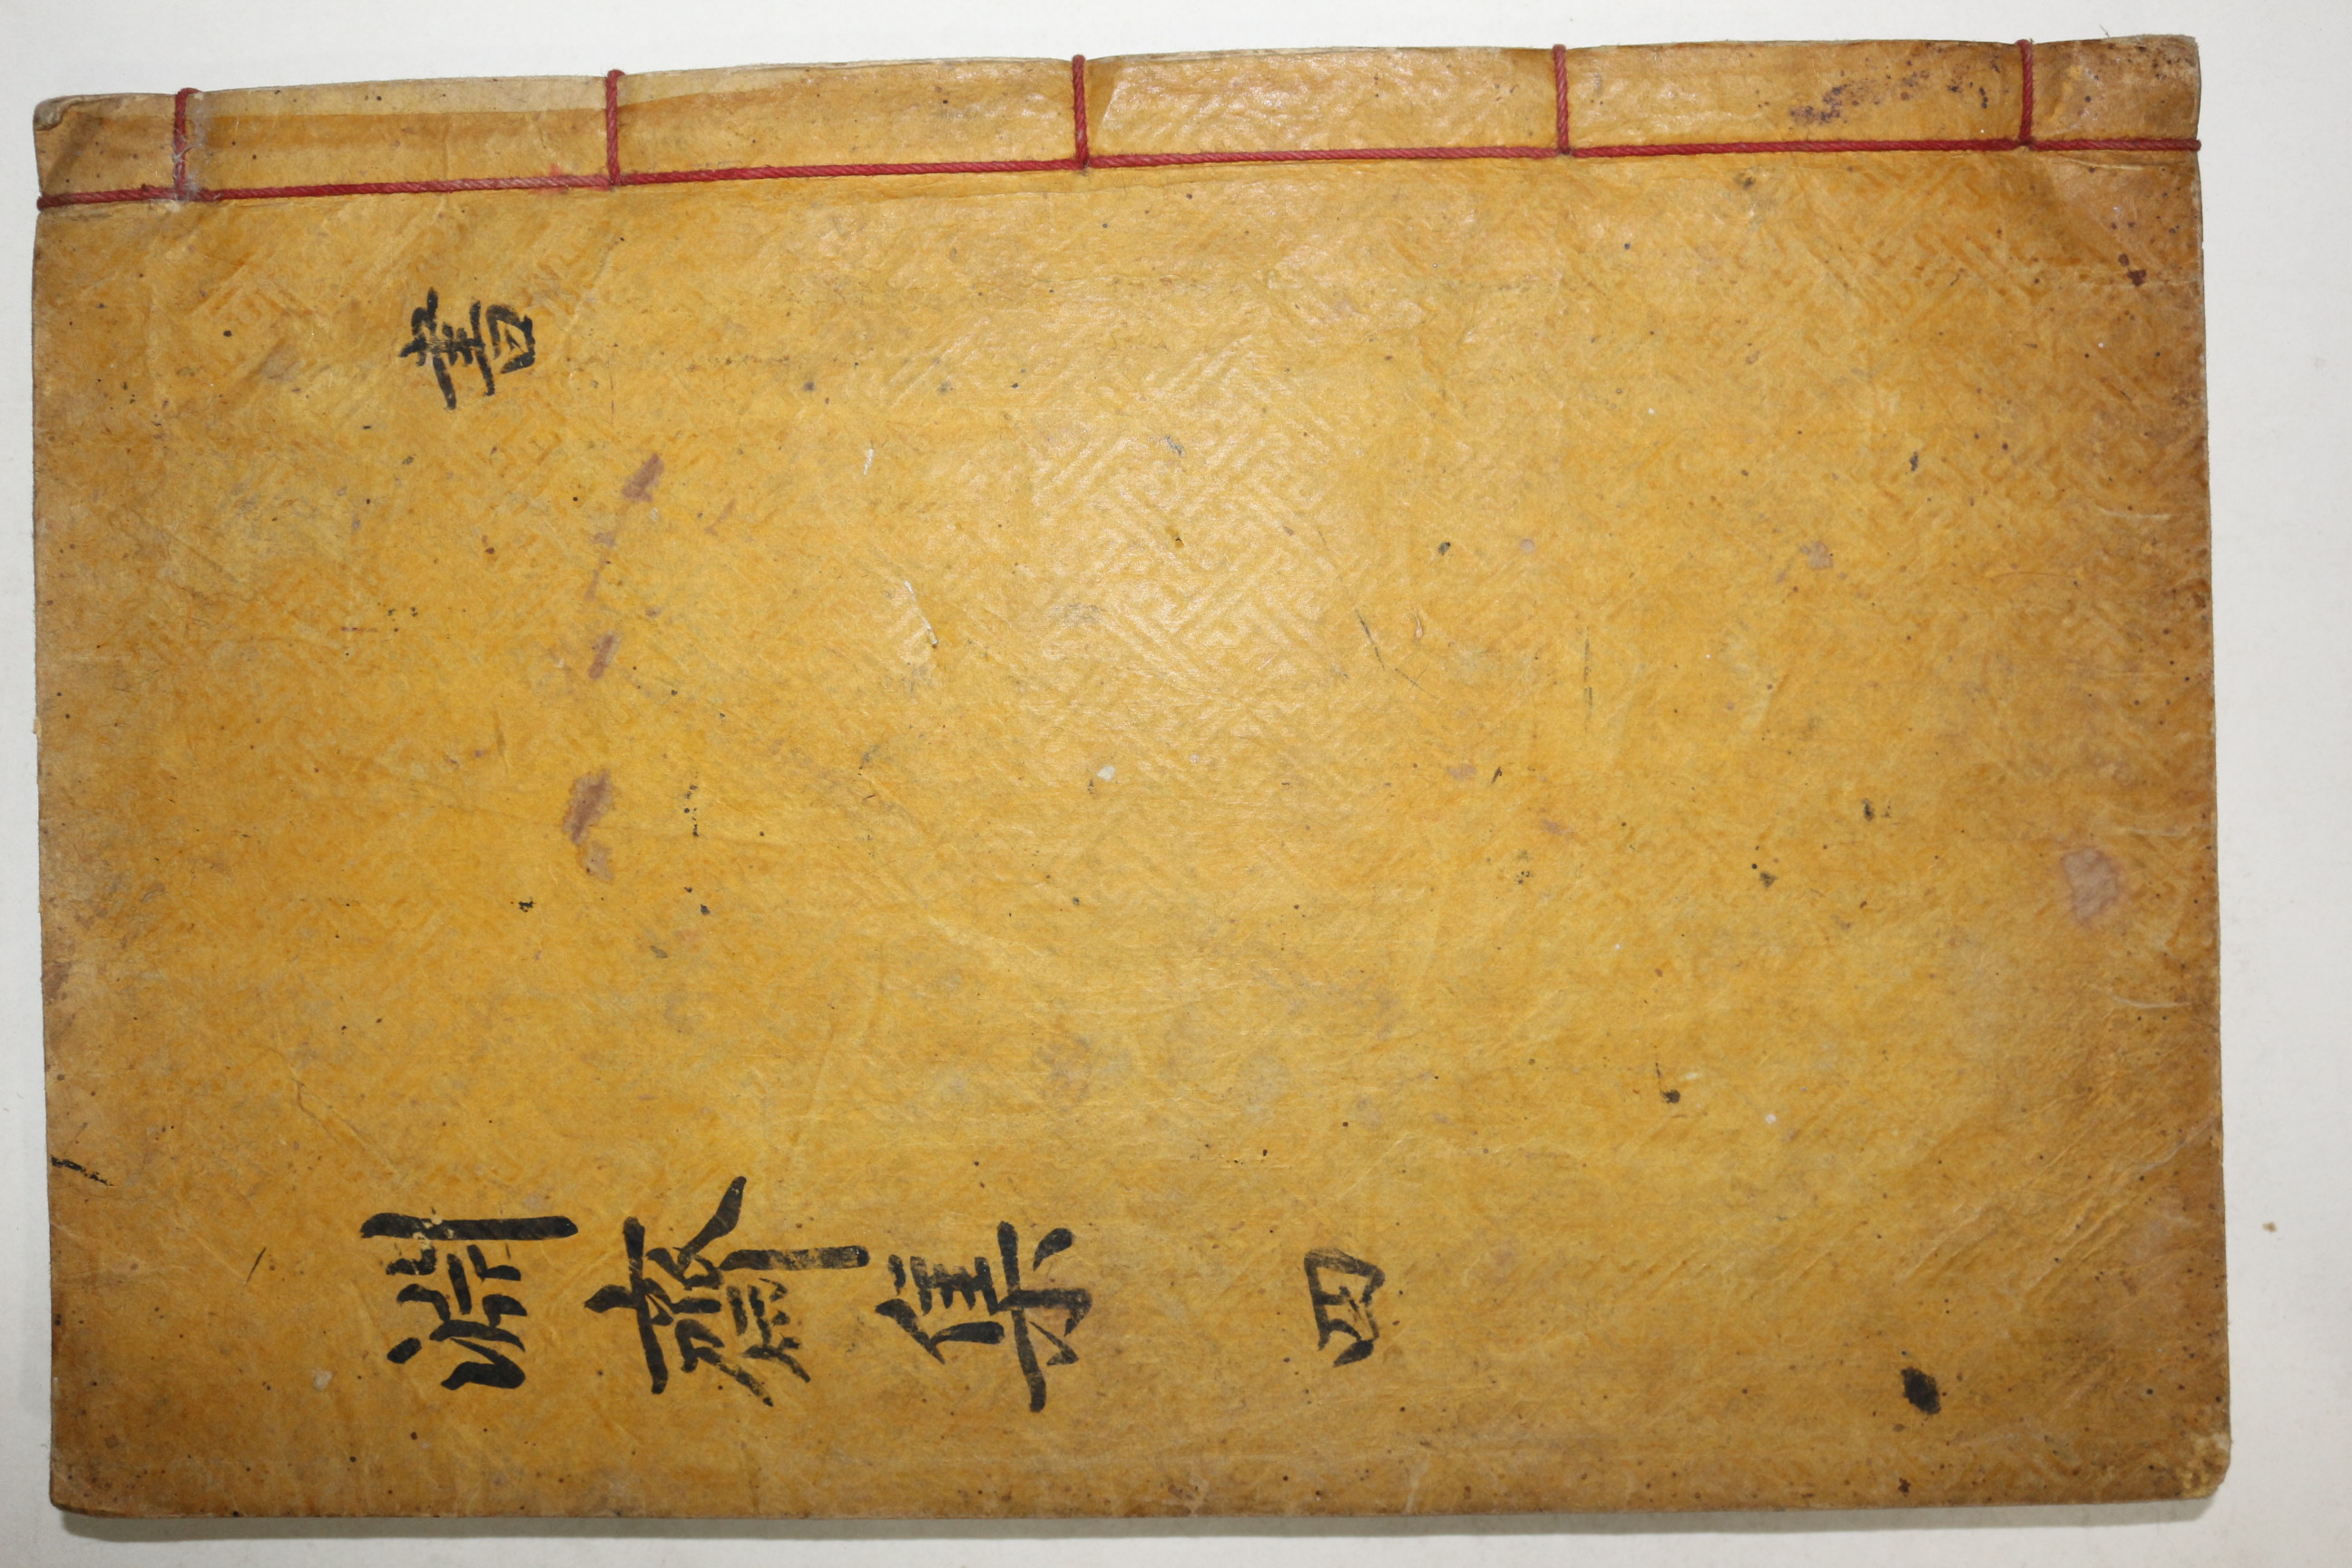 淵齋集 四
書